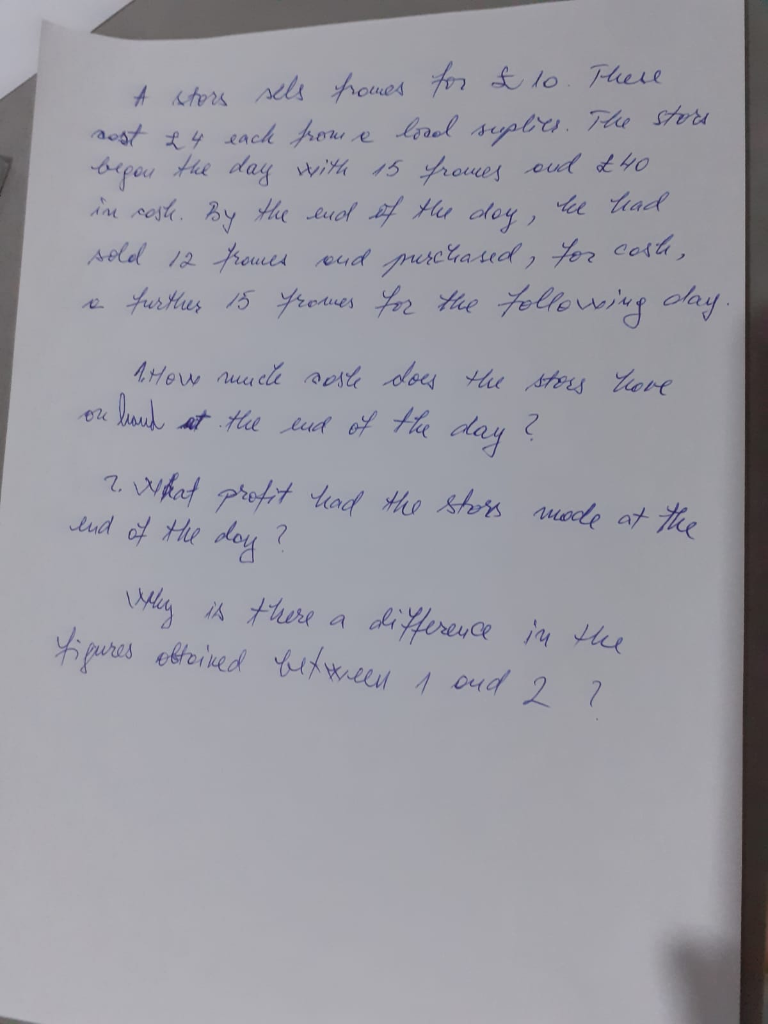 A store sells frames for £10. These
cost £4 each from a local suplier. The store
began the day with 15 frames and £40
in cash. By the end of the day, he had
sold 12 frames and purchased, for cash,
a further 15 frames for the following day.
1. How much cash does the store have
on hand at the end of the day?
2. What profit had the store made at the
end of the day?
Why is there a difference in the
figures obtained between 1 and 2?